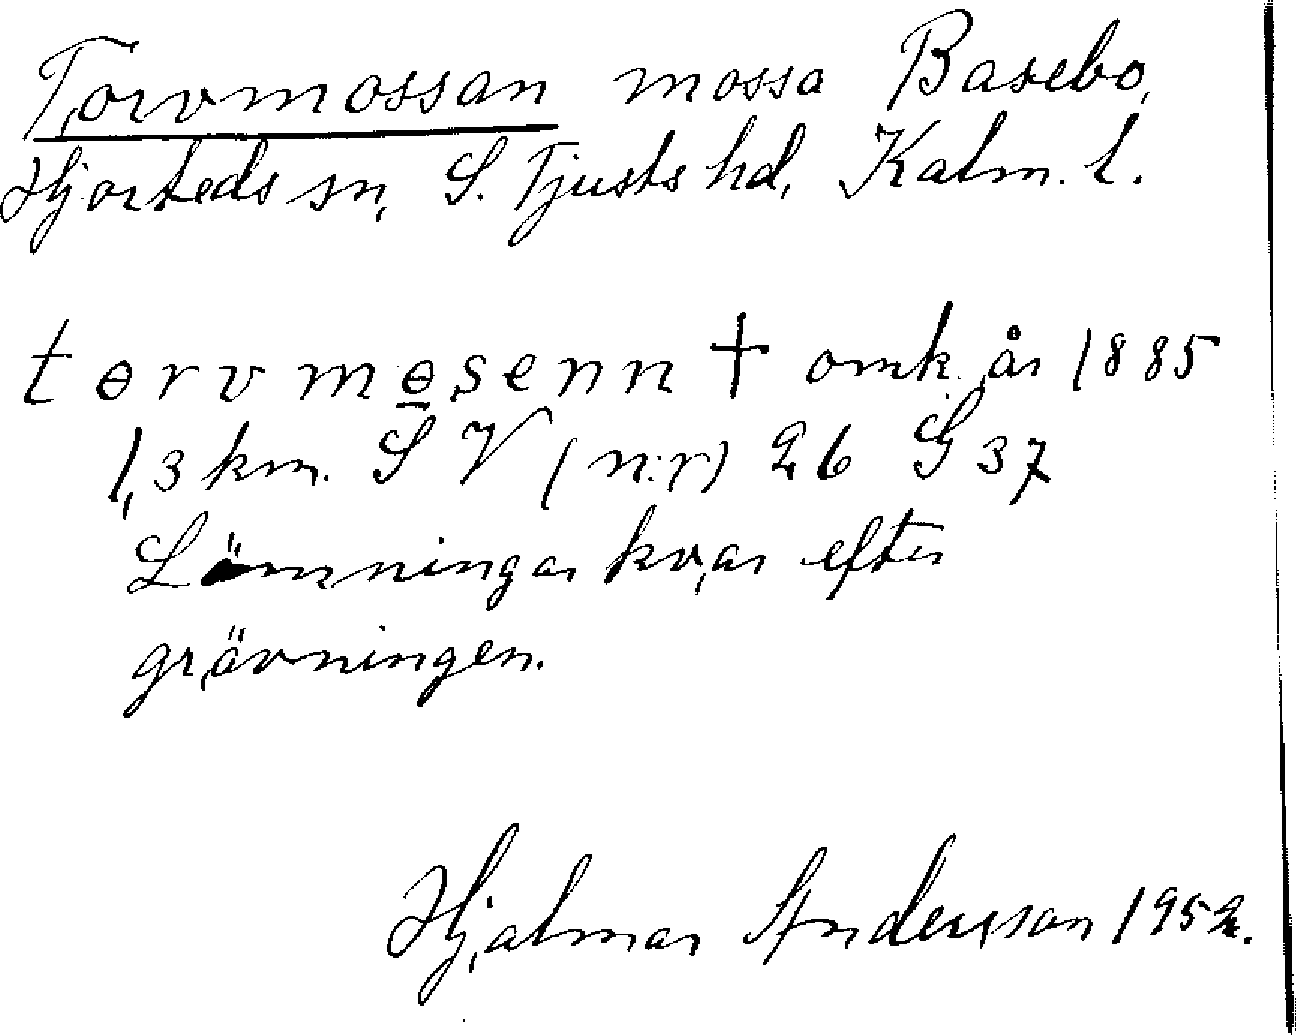 Torvmossan mossa Basebo,
Hjorteds sn, S. Tjusts hd, Kalm. l.
tɵrvmɵsenn † omk. år 1885
1,3 km. SV (n:r) 26 G 37
Lämningar kvar efter
grävningen.
Hjalmar Andersson 1952.